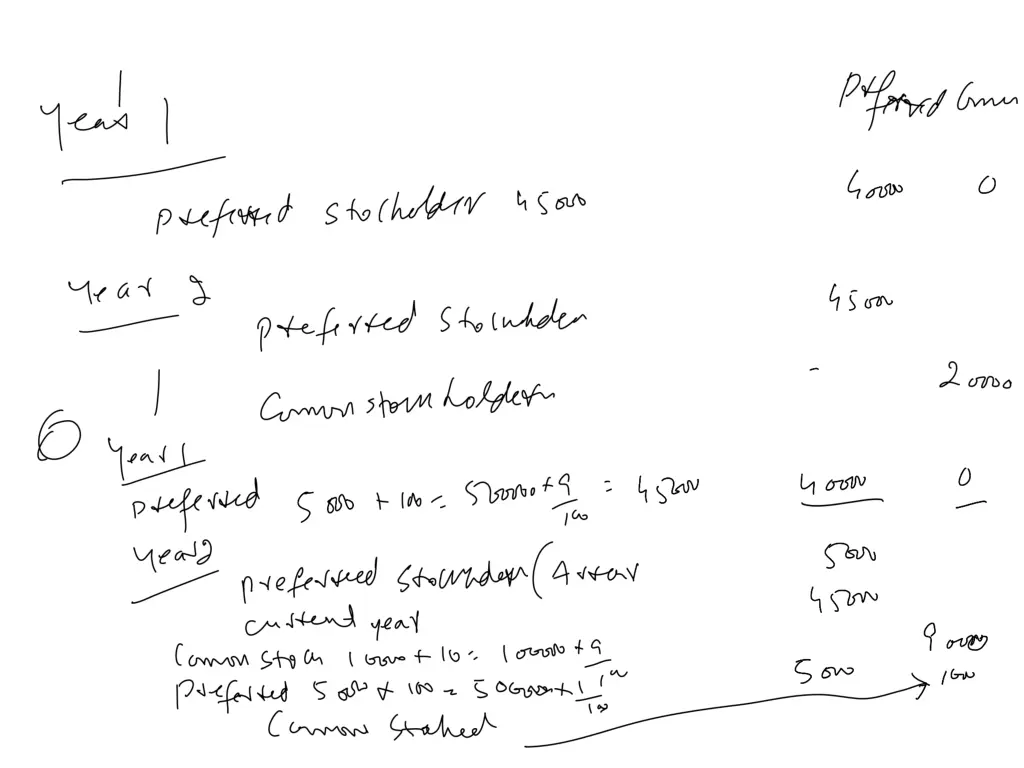 Preferred Common
Year 1
preferred stocholder 45000 40000 0
Year 2
preferred Stockholder 45000
Common stockholder - 20000
Year 1
preferred 5000 + 100 = 500000 + 9/100 = 45000 40000 0
Year 2
preferred stockholder (Arrear 5000
current year 45000
Common stock 10000 + 10 = 100000 + 9/100 90000
preferred 5000 + 100 = 500000 + 1/100 5000 1000
Common Stoked